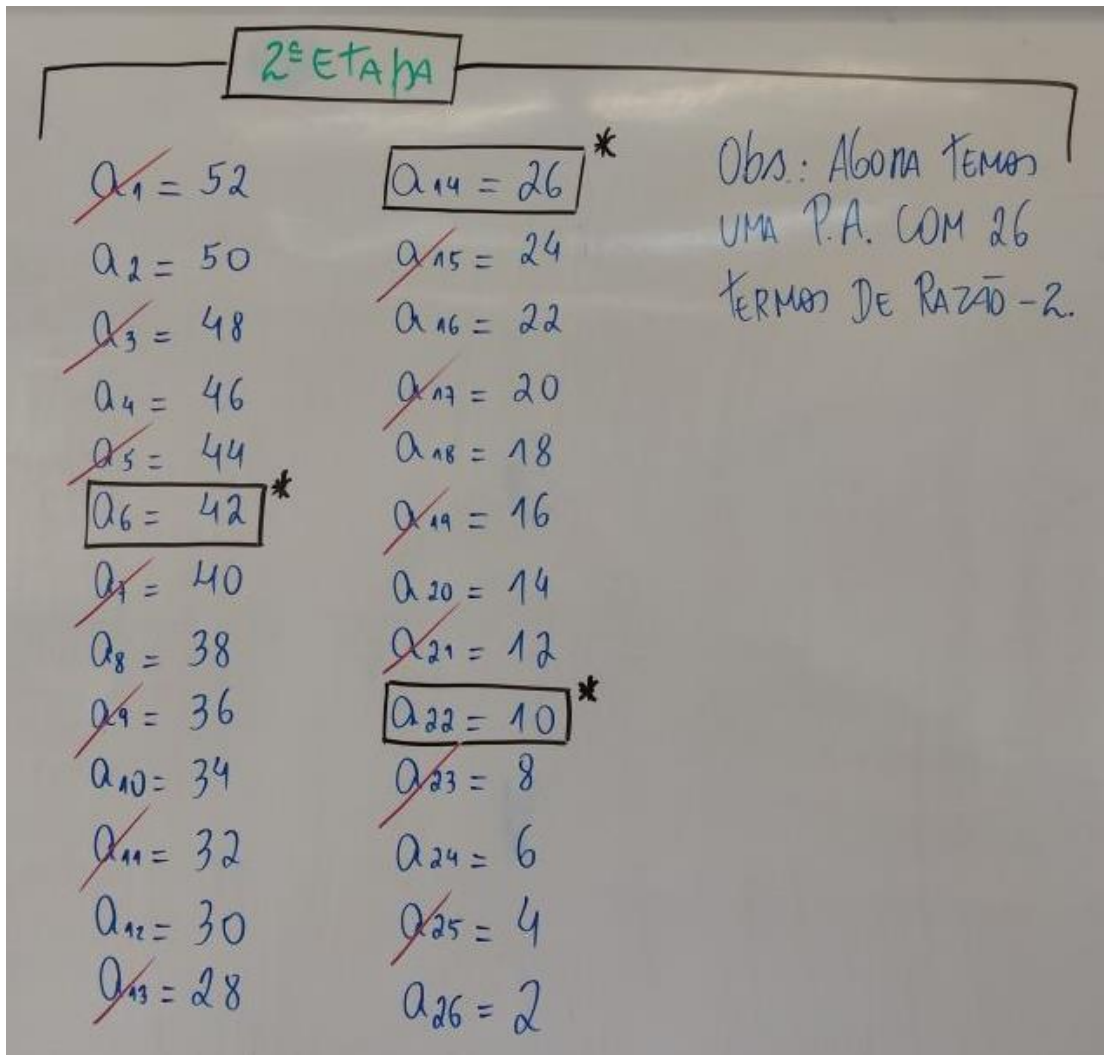 2ª ETAPA
a1 = 52
a2 = 50
a3 = 48
a4 = 46
a5 = 44
a6 = 42 *
a7 = 40
a8 = 38
a9 = 36
a10 = 34
a11 = 32
a12 = 30
a13 = 28
a14 = 26 *
a15 = 24
a16 = 22
a17 = 20
a18 = 18
a19 = 16
a20 = 14
a21 = 12
a22 = 10 *
a23 = 8
a24 = 6
a25 = 4
a26 = 2
Obs.: AGORA TEMOS
UMA P.A. COM 26
TERMOS DE RAZÃO -2.